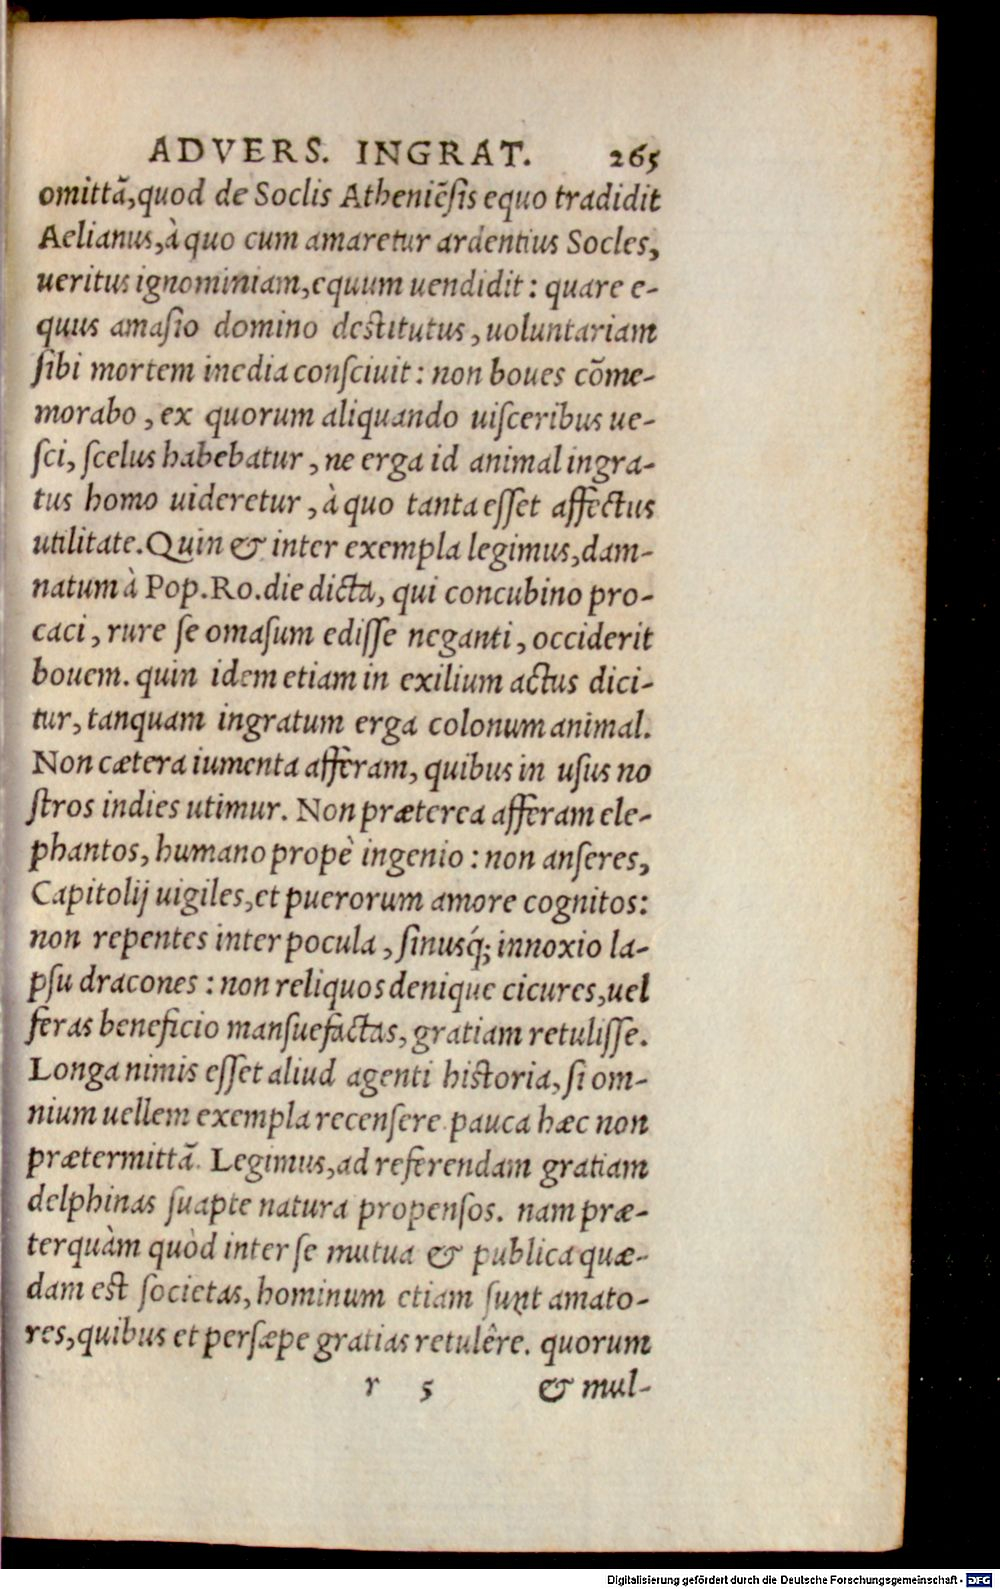 ADVERS. INGRAT. 265
omittā, quod de Soclis Atheniēsis equo tradidit
Aelianus, à quo cum amaretur ardentius Socles,
ueritus ignominiam, equum uendidit: quare e-
quus amasio domino destitutus, uoluntariam
sibi mortem inedia consciuit: non boues cōme-
morabo, ex quorum aliquando uisceribus ue-
sci, scelus habebatur, ne erga id animal ingra-
tus homo uideretur, à quo tanta esset affectus
utilitate. Quin & inter exempla legimus, dam-
natum à Pop. Ro. die dicta, qui concubino pro-
caci, rure se omasum edisse neganti, occiderit
bouem. quin idem etiam in exilium actus dici-
tur, tanquam ingratum erga colonum animal.
Non cætera iumenta afferam, quibus in usus no
stros indies utimur. Non præterea afferam ele-
phantos, humano propè ingenio: non anseres,
Capitolij uigiles, et puerorum amore cognitos:
non repentes inter pocula, sinusq́; innoxio la-
psu dracones: non reliquos denique cicures, uel
feras beneficio mansuefactas, gratiam retulisse.
Longa nimis esset aliud agenti historia, si om-
nium uellem exempla recensere. pauca hæc non
prætermittā. Legimus, ad referendam gratiam
delphinas suapte natura propensos. nam præ-
terquàm quòd inter se mutua & publica quæ-
dam est societas, hominum etiam sunt amato-
res, quibus et persæpe gratias retulêre. quorum
r 5 & mul-
Digitalisierung gefördert durch die Deutsche Forschungsgemeinschaft - DFG